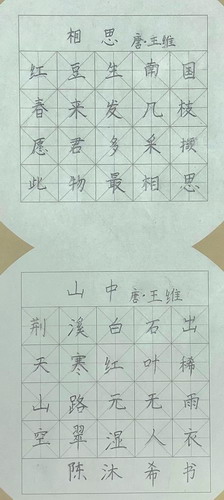 相思 唐·王维
红豆生南国
春来发几枝
愿君多采撷
此物最相思
山中 唐·王维
荆溪白石出
天寒红叶稀
山路元无雨
空翠湿人衣
陈沐希书